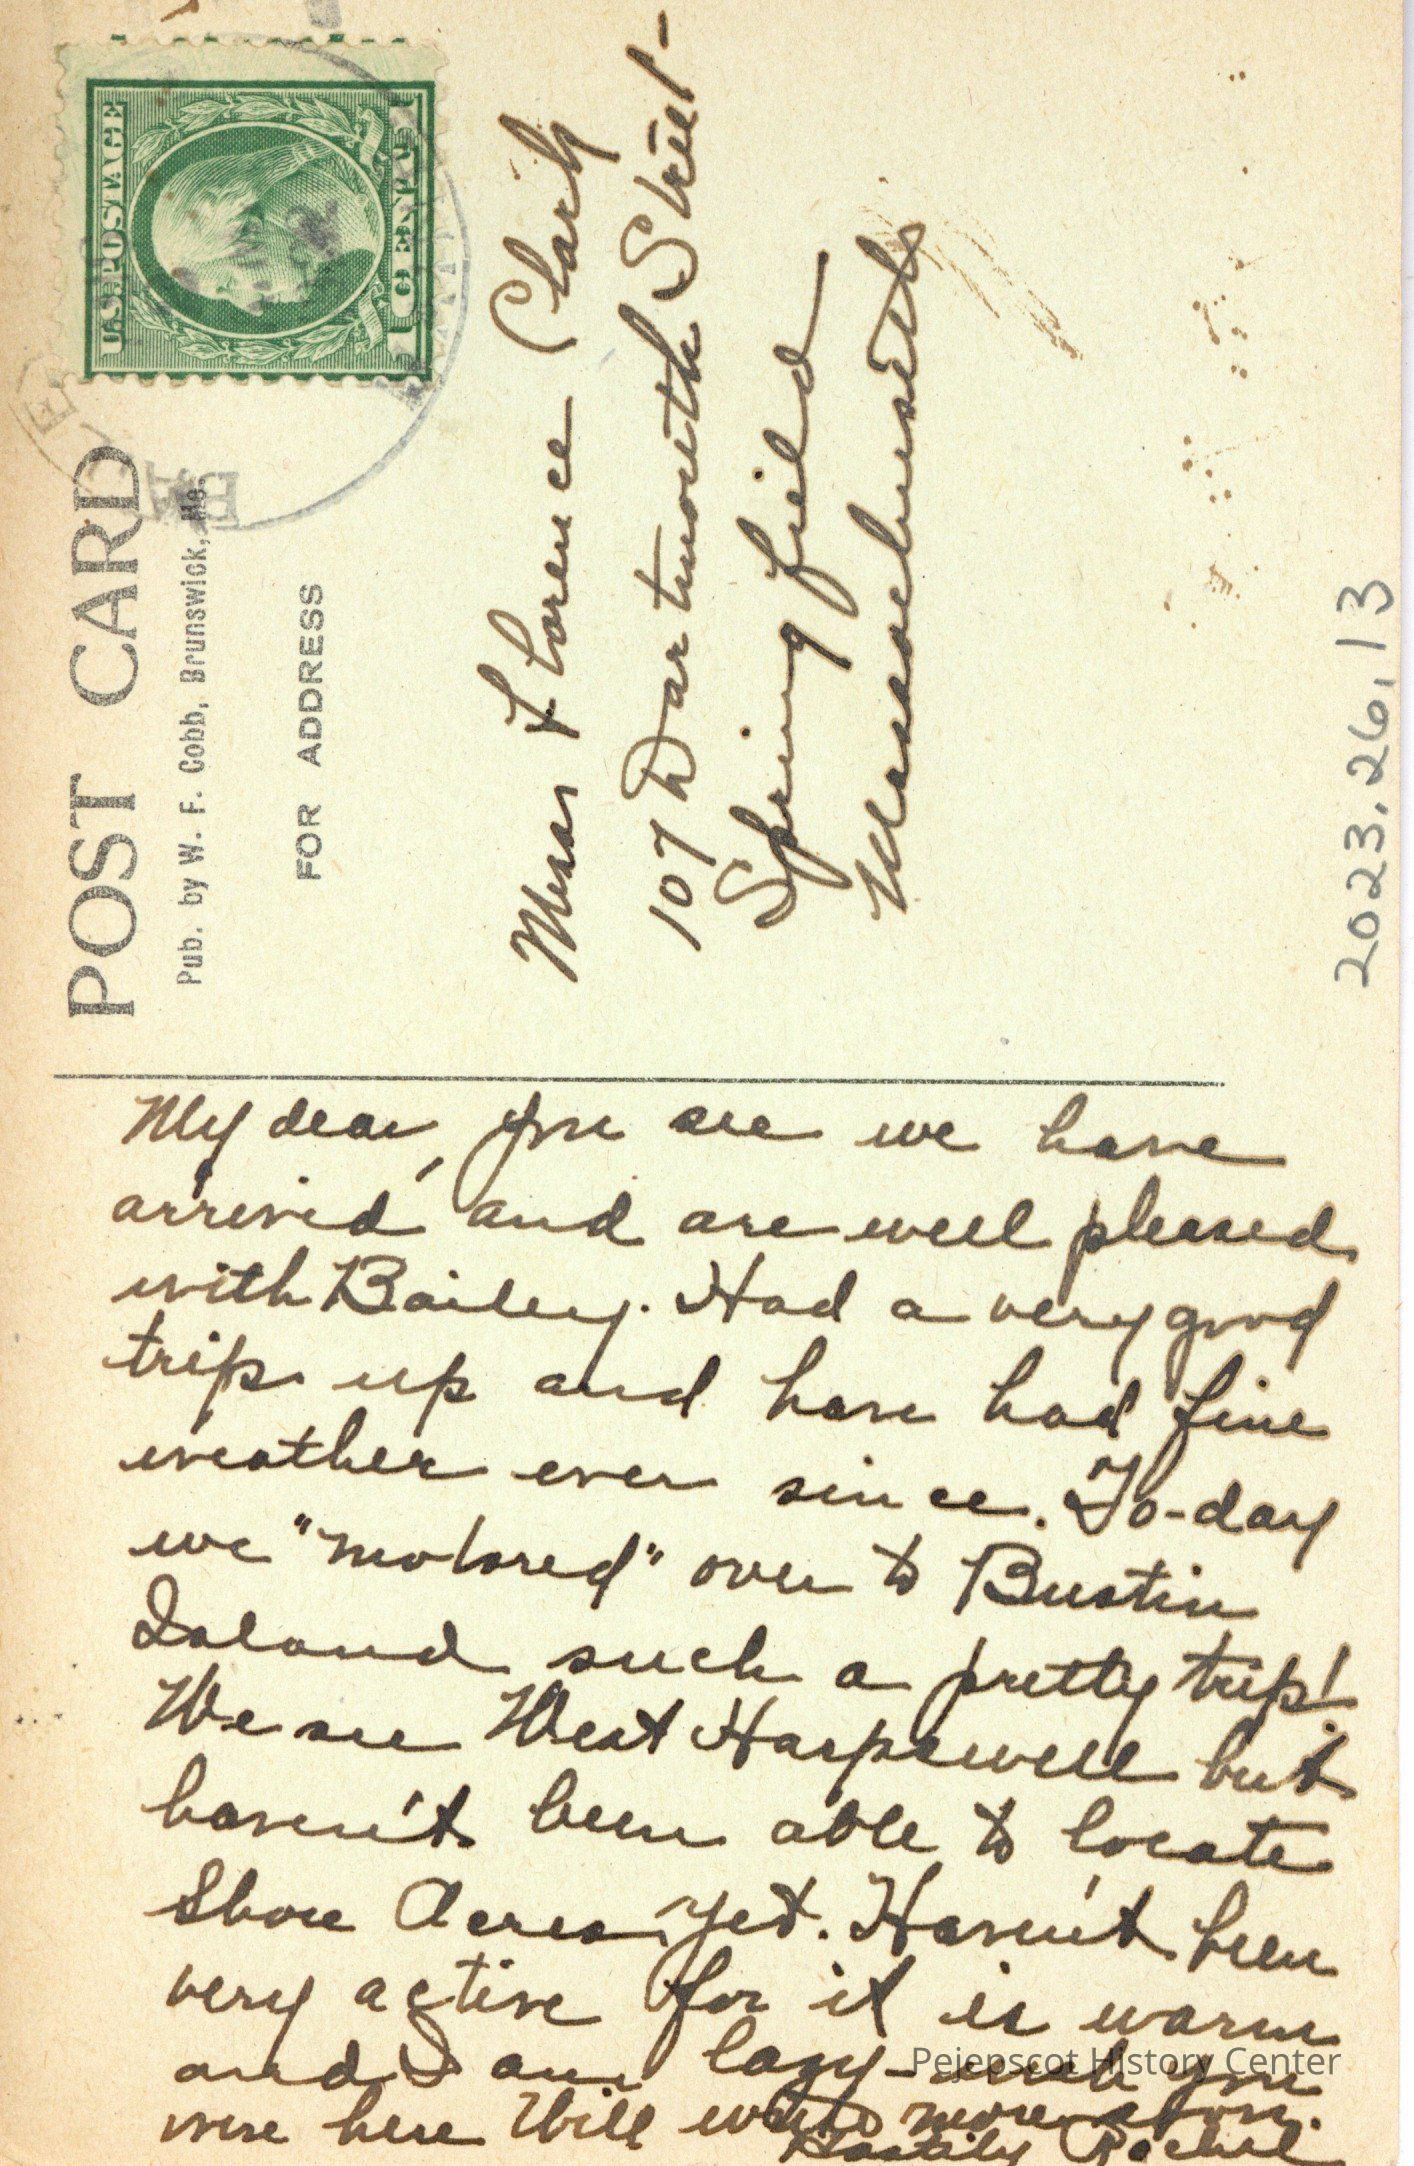 U.S. POSTAGE
1 CENT 1
POST CARD
Pub. by W. F. Cobb, Brunswick, Me.
FOR ADDRESS
Miss Florence Clark
107 Dartmouth Street-
Springfield
Massachusetts
2023.26.13
My dear, you see we have
arrived and are well pleased
with Bailey. Had a very good
trip up and have had fine
weather ever since. To-day
we "motored" over to Bustin
Island such a pretty trip!
We see West Harpswell but
haven't been able to locate
Shore Acres yet. Haven't been
very active for it is warm
and I am lazy - wish you
were here Will write more soon.
Hastily Rachel
Pejepscot History Center